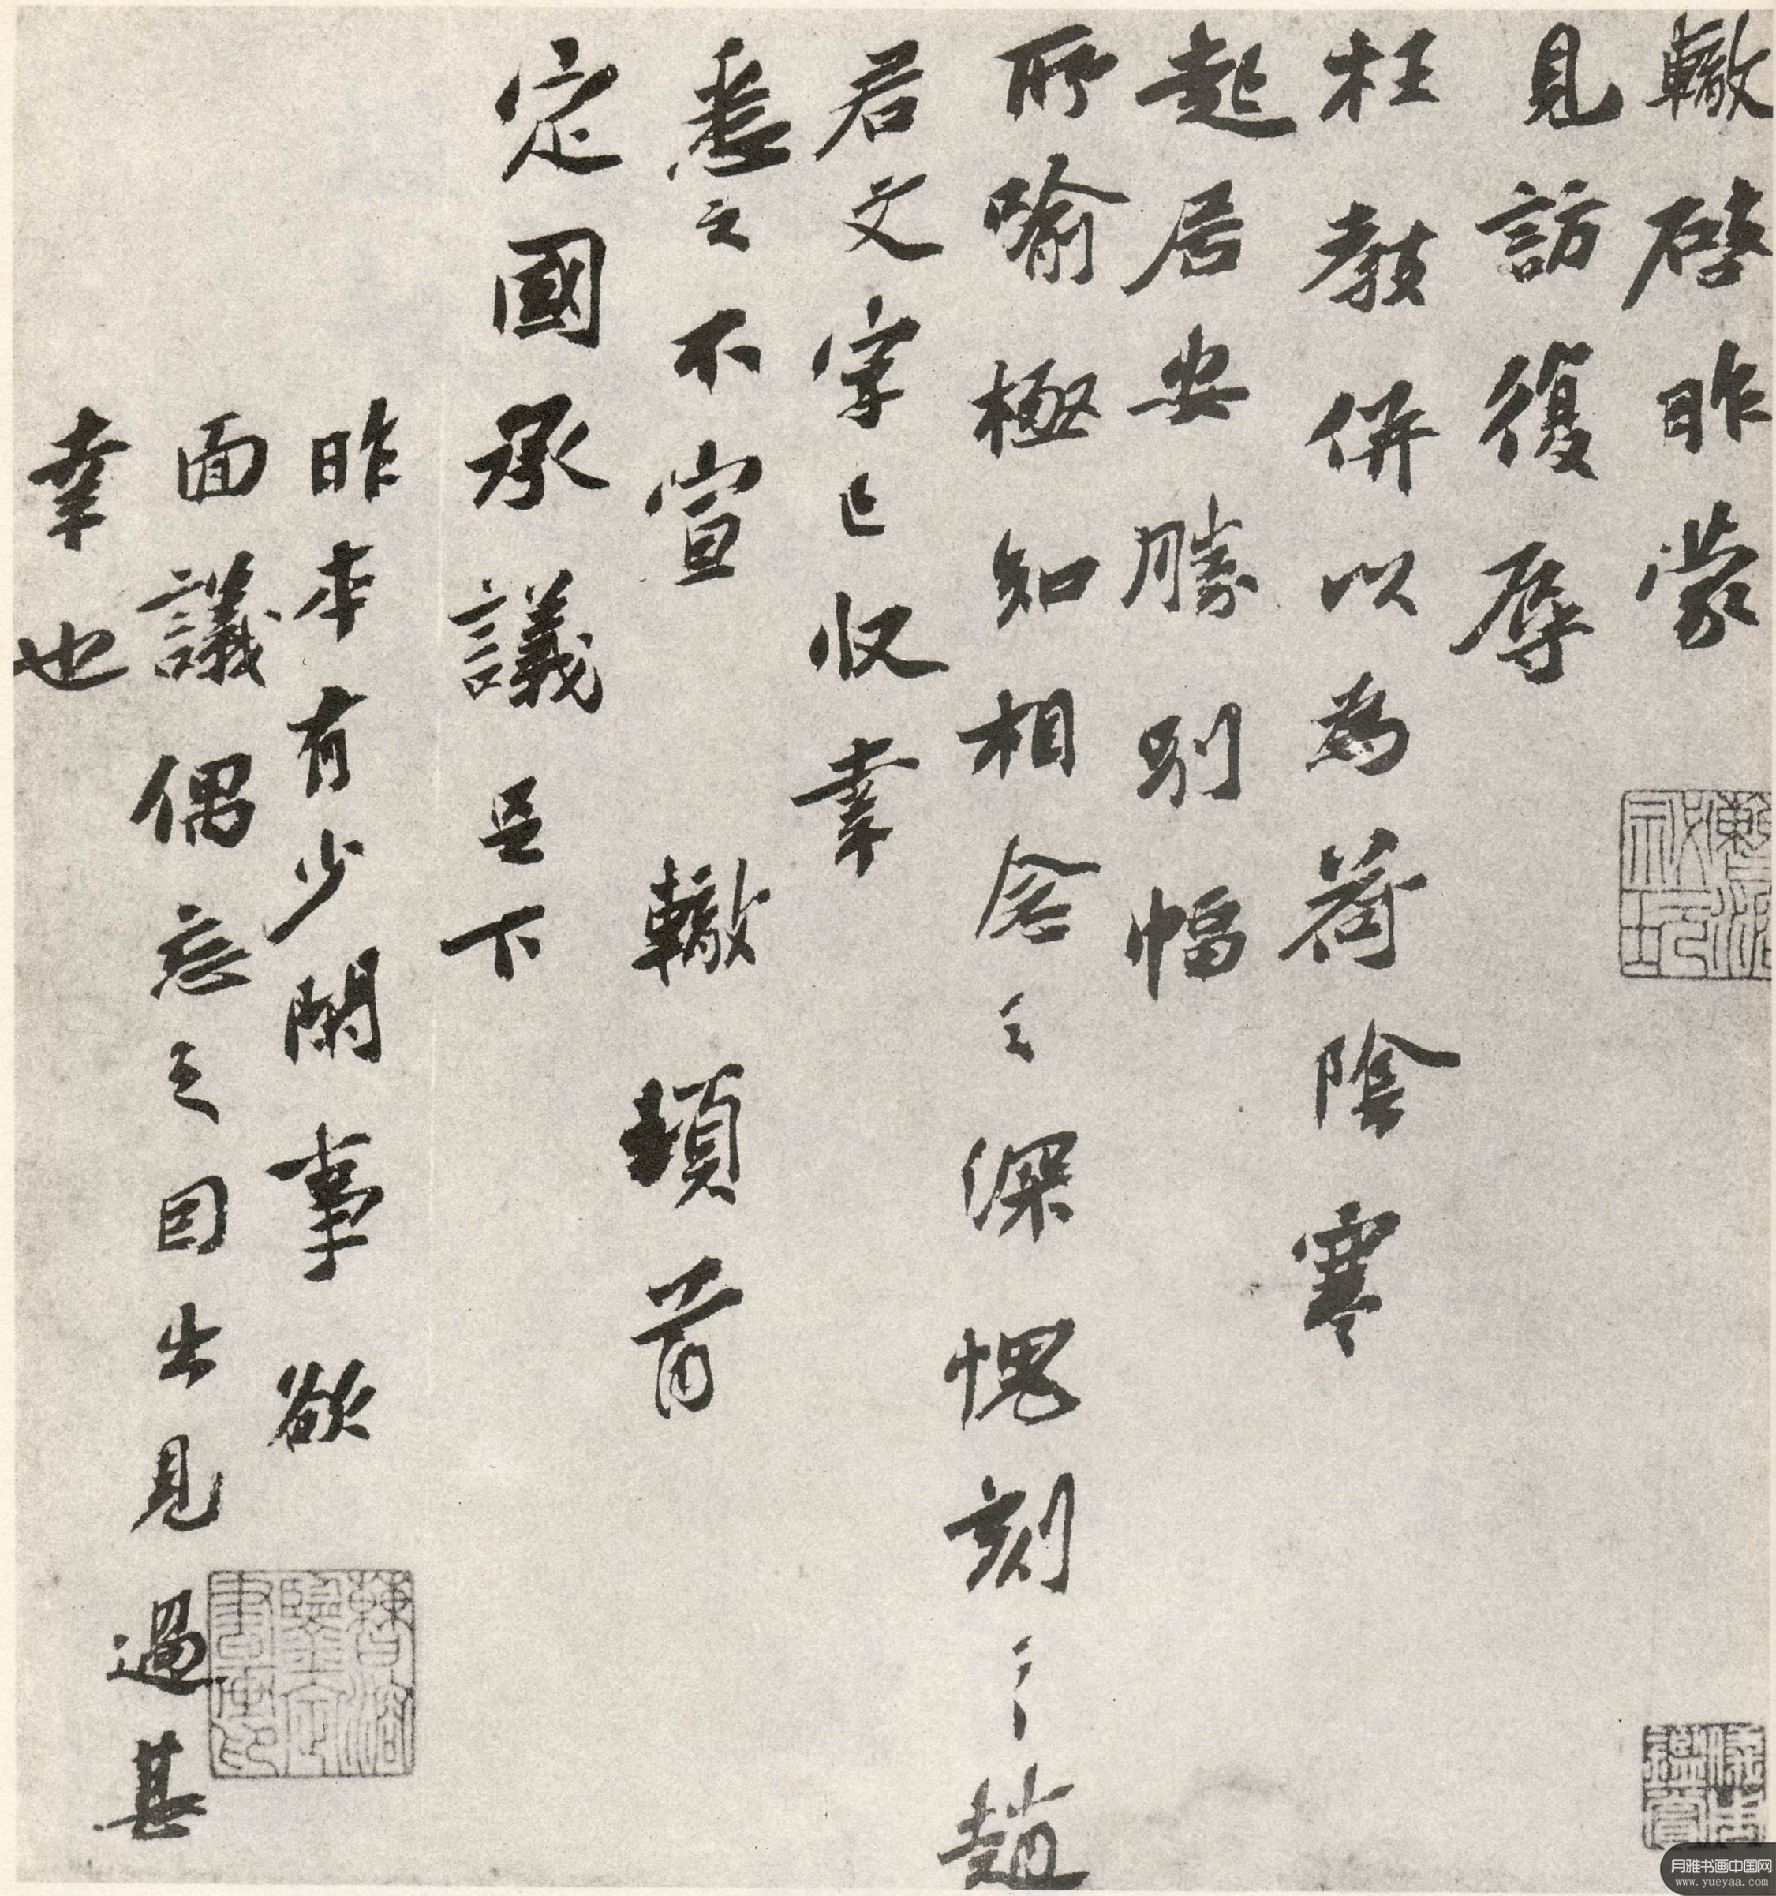 轍啓昨蒙
見訪復辱
枉教併以為荷陰寒
起居安勝別幅
所喻極知相念之深愧刻〻趙
君文字已收幸
悉之不宣 轍頓首
定國承議足下
昨本有少閑事欲
面議偶忘之因出見過甚
幸也
月雅书画中国网
www.yueyaa.com